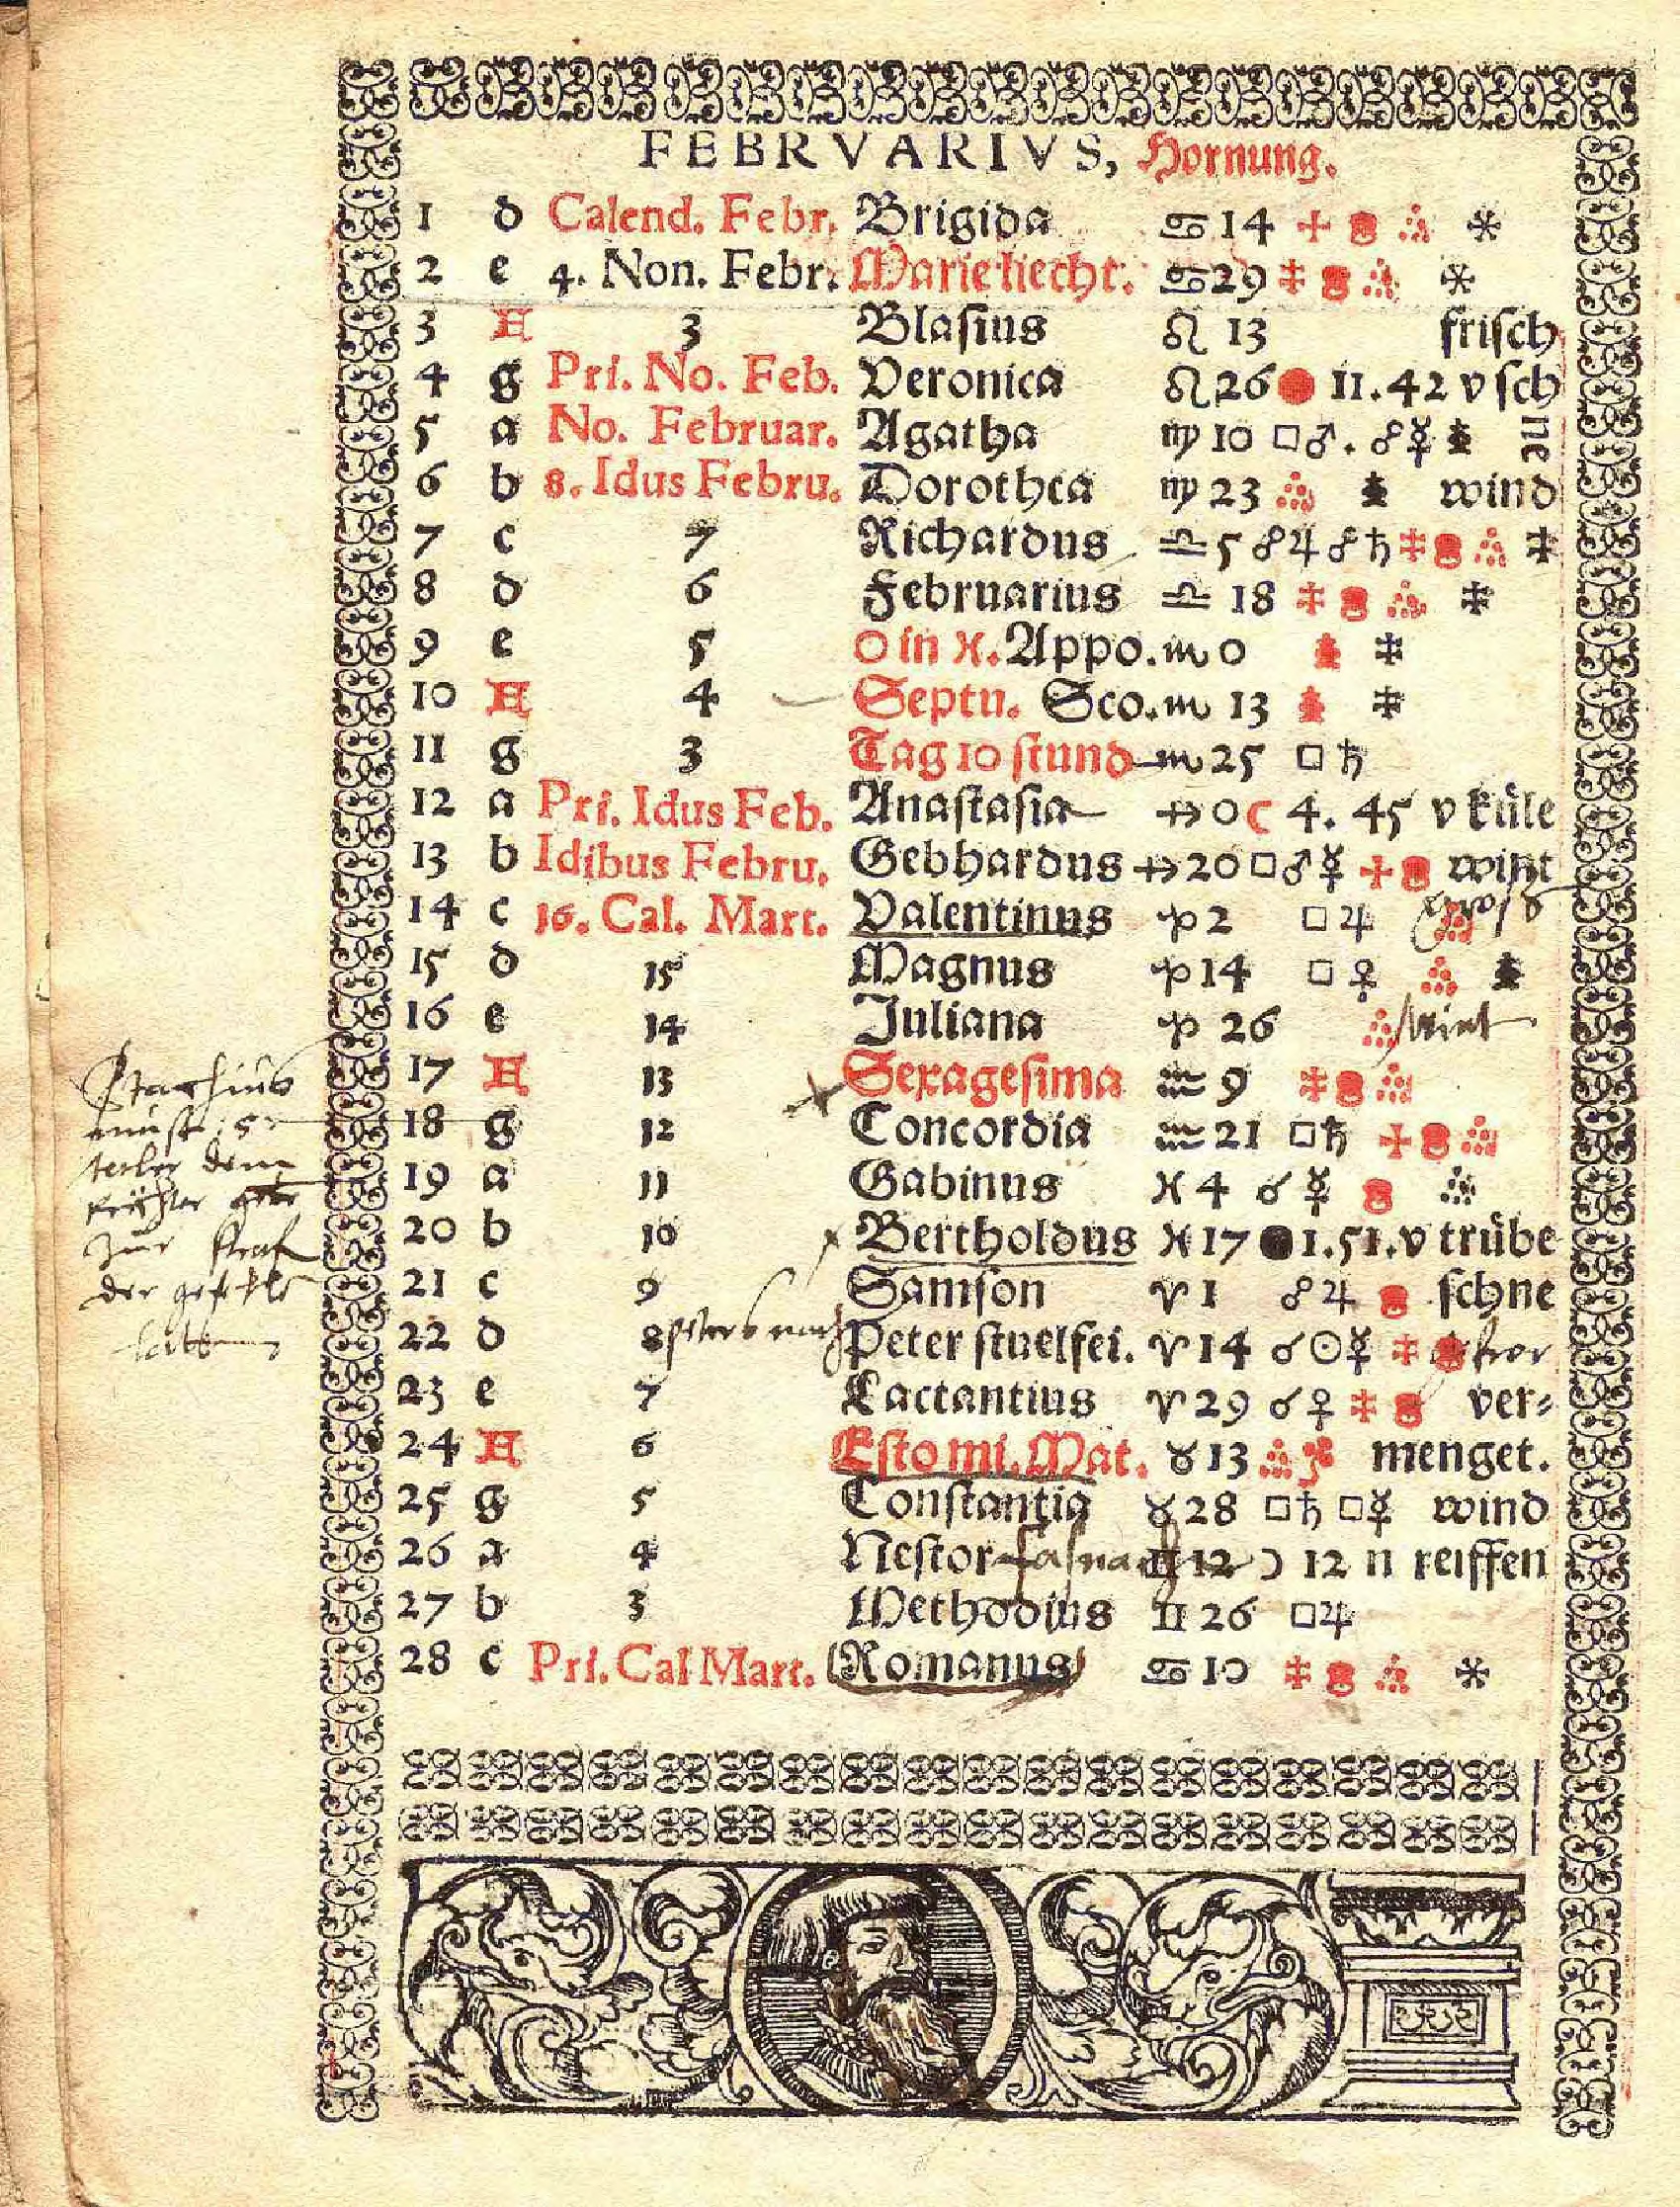 FEBRVARIVS, Hornung.
1 d Calend. Febr. Brigida ♋ 14
2 e 4. Non. Febr. Marie liecht. ♋ 29
3 F 3 Blasius ♌ 13 frisch
4 g Pri. No. Feb. Veronica ♌ 26 11.42 v sch
5 a No. Februar. Agatha ♍ 10 □ ♂. ☍ ☿ ne
6 b 8. Idus Febru. Dorothea ♍ 23 wind
7 c 7 Richardus ♎ 5 ☍ ♃ ☍ ♄
8 d 6 Februarius ♎ 18
9 e 5 O in ♓. Appo. ♏ 0
10 F 4 Septu. Sco. ♏ 13
11 g 3 Tag 10 stund ♏ 25 □ ♄
12 a Pri. Idus Feb. Anastasia ♐ 0 C 4. 45 v küle
13 b Idibus Febru. Gebhardus ♐ 20 □ ♂ ☿ wint
14 c 16. Cal. Mart. Valentinus ♑ 2 □ ♃
15 d 15 Magnus ♑ 14 □ ♀
16 e 14 Juliana ♑ 26 wint
17 F 13 Sexagesima ♒ 9
18 g 12 Concordia ♒ 21 □ ♄
19 a 11 Gabinus ♓ 4 ☌ ☿
20 b 10 Bertholdus ♓ 17 ● 1.51. v trübe
21 c 9 Samson ♈ 1 ☍ ♃ schne
22 d 8 Peter stuelfei. ♈ 14 ☌ ☉ ☿
23 e 7 Lactantius ♈ 29 ☌ ♀ ver-
24 F 6 Esto mi. Mat. ♉ 13 menget.
25 g 5 Constantia ♉ 28 □ ♄ □ ☿ wind
26 a 4 Nestor fasnacht ♊ 12 ☽ 12 n reiffen
27 b 3 Methodius ♊ 26 □ ♃
28 c Pri. Cal Mart. Romanus ♋ 10
zur straf
der